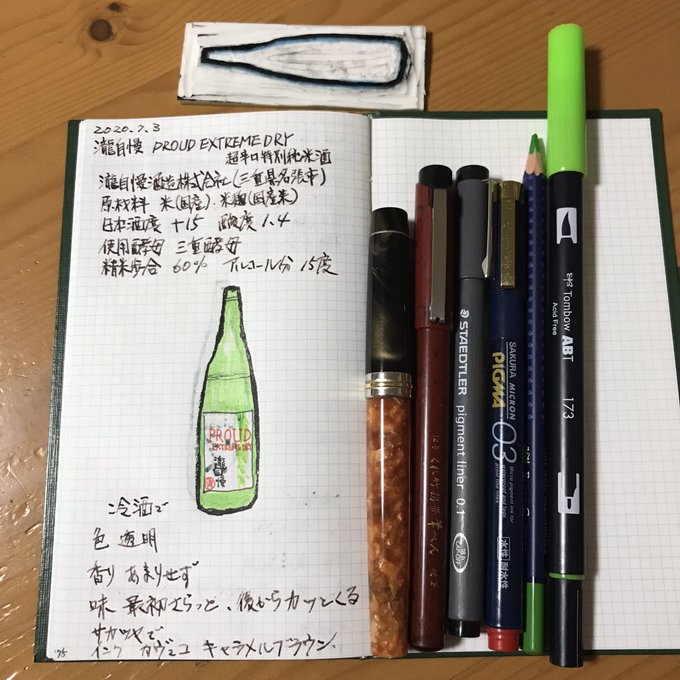 2020.7.3
瀧自慢 PROUD EXTREME DRY
超辛口特別純米酒
瀧自慢酒造株式会社(三重県名張市)
原材料 米(国産).米麹(国産米)
日本酒度 +15 酸度 1.4
使用酵母 三重酵母
精米歩合 60% アルコール分 15度
PROUD
EXTREME DRY
冷酒で
色 透明
香り あまりせず
味 最初さらっと、後からカッとくる
サカツヤで
インク ガヴェコ キャラメルブラウン.
'75
くれ竹携帯筆ぺん
STAEDTLER pigment liner 0.1
SAKURA MICRON
PIGMA 03
水性 耐水性
Tombow ABT
Acid Free
173